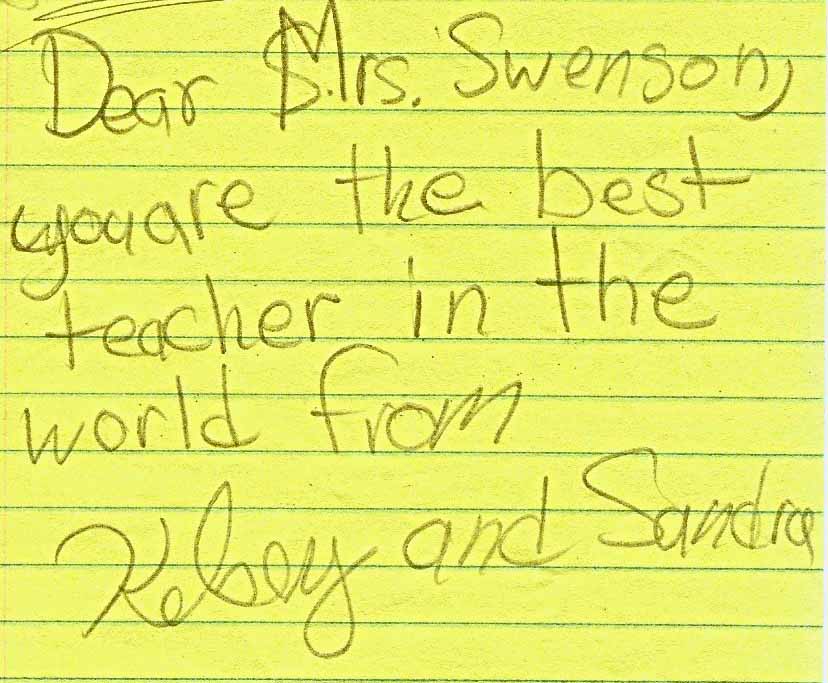 Dear Mrs. Swenson,
you are the best
teacher in the
world from
Kelsey and Sandra